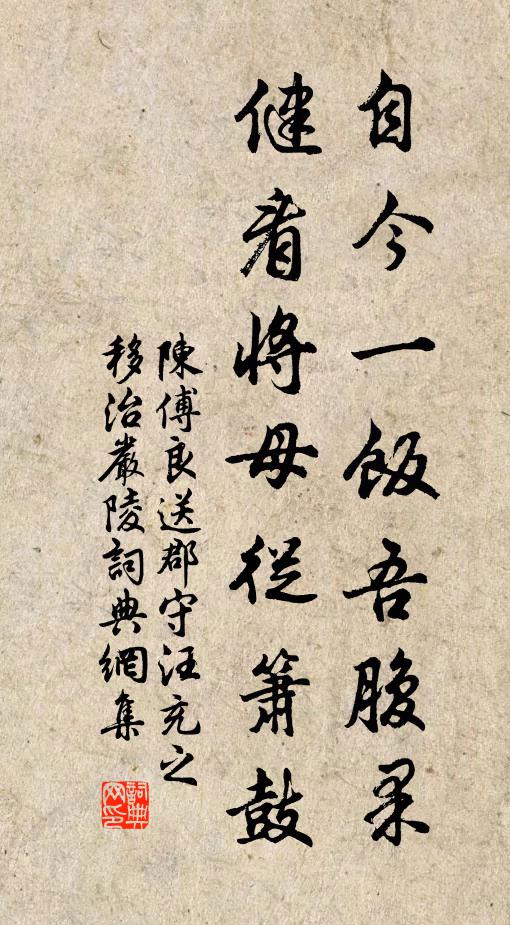 自今一飯吾腹果
健者將母從簫鼓
陳傅良送郡守汪充之
移治嚴陵詞典網集
詞典網印